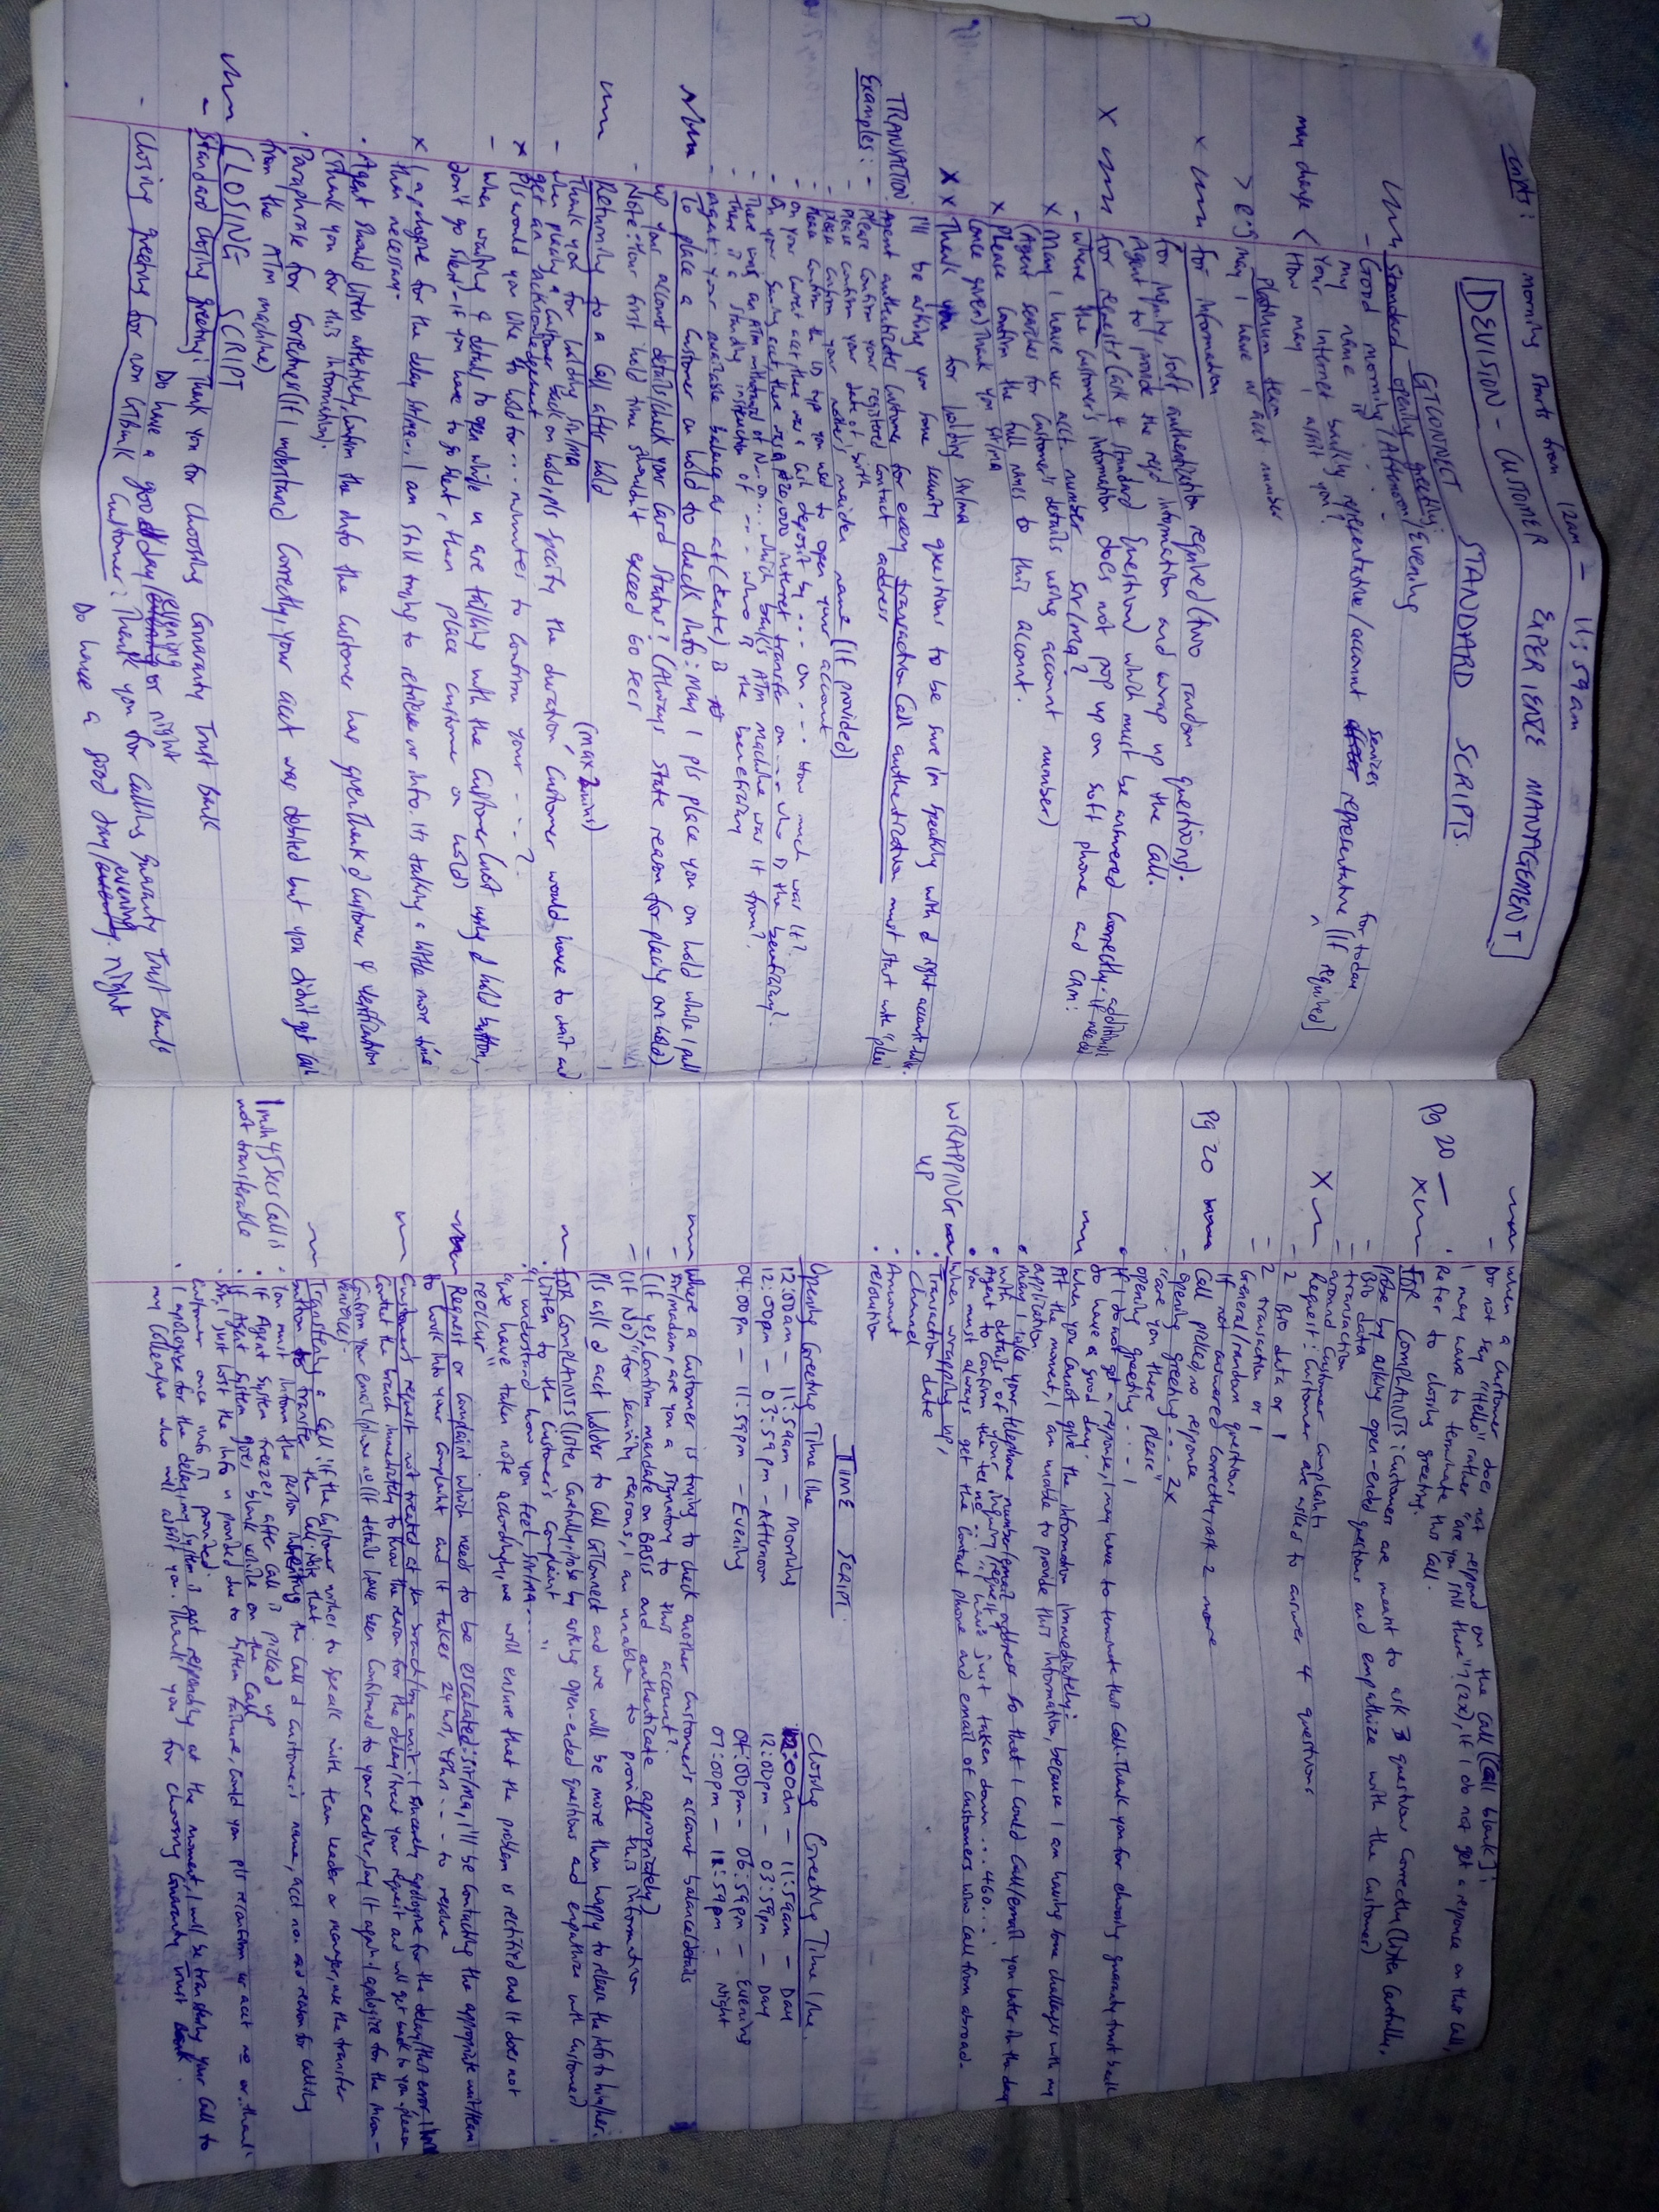 morning starts from 12am - 11:59am
DEVISION - CUSTOMER EXPERIENCE MANAGEMENT
Scripts:
GTCONNECT STANDARD SCRIPTS
Standard opening greeting:
- Good morning / Afternoon / Evening
my name is . . .
Your internet banking representative / account services representative [If required]
for today
may change < How may I assist you?
Platinum team
> eg May I have ur acct number
x For information
For inquiry, soft authentication required (two random questions).
Agent to provide the req'd information and wrap up the call.
x For requests (ask 4 standard questions) which must be answered correctly. additional if needed
- Where the customer's information does not pop up on soft phone and CRM:
x May I have ur acct. number sir/ma?
(Agent searches for customer's details using account number)
x Please confirm the full names to this account.
(once given) Thank you sir/ma
x Thank you for holding sir/ma
x I'll be asking you some security questions to be sure I'm speaking with d right account
TRANSACTION: Agent authenticates customer for every transaction call authentication must start with "please
Examples: - Please confirm your registered contact address
- Please confirm your date of birth
- Please confirm your mother's maiden name [If provided]
- Please confirm the ID type you used to open your account
- On your current acct, there was a cash deposit by . . . on . . . How much was it?
- On your savings acct, there was a #20,000 internet transfer on . . . who is the beneficiary?
- There was an ATM withdrawal of N . . . on . . . which bank's ATM machine was it from?
- There is a standing instruction of . . . who is the beneficiary
- Again: your available balance as at (date) is
To place a customer on hold to check info: May I pls place you on hold while I pull
up your account details/check your card status? (Always state reason for placing on hold)
- Note: Your first hold time shouldn't exceed 60 secs
Returning to a call after hold
Thank you for holding sir/ma (max 2mins)
- When placing a customer back on hold, pls specify the duration, customer would have to wait and
get an acknowledgement
x Pls would you like to hold for . . . minutes to confirm your . . . ?
- When waiting 4 details to open while u are talking with the customer (not using d hold button,
don't go silent - if you have to go silent, then place customer on hold)
x I apologise for the delay sir/ma, I am still trying to retrieve ur info. Its taking a little more time
than necessary.
• Agent should listen attentively, confirm the info the customer has given. Thank d customer 4 verification
(Thank you for this information).
• Paraphrase for correctness (If I understand correctly, your acct was debited but you didn't get cash
from the ATM machine)
CLOSING SCRIPT
- Standard closing greeting: Thank you for choosing Guaranty Trust Bank
Do have a good day/evening or night
- Closing greeting for non GTBank Customer: Thank you for calling Guaranty Trust Bank
Do have a good day/evening night
When a customer does not respond on the call [Call blank]:
- Do not say "Hello" rather "are you still there"? (2x), if I do not get a response on this call,
I may have to terminate this call.
• Refer to closing greeting.
Pg 20 - x FOR COMPLAINTS: Customers are meant to ask 3 questions correctly (Listen carefully,
probe by asking open-ended questions and empathize with the customer)
- Bio data
- transaction
- around customer complaints
x Request: Customer are asked to answer 4 questions
- 2 Bio data or 1
- 2 transaction or 1
= General/random questions
If not answered correctly, ask 2 more
Pg 20 Call picked, no response
- opening greeting . . . 2x
"are you there please"
opening greeting . . . 1
• If I do not get a response, I may have to terminate this call. Thank you for choosing guaranty trust bank
Do have a good day.
When you cannot give the information immediately:
At the moment, I am unable to provide this information, because I am having some challenges with my
application.
• May I take your telephone number/email address so that I could call/email you later in the day
with details of your inquiry/request
• Agent to confirm the tel no . . "I have just taken down . . . 460 . . ."
• You must always get the contact phone and email of customers who call from abroad.
WRAPPING UP When wrapping up,
• Transaction date
• Channel
• Amount
• resolution
TIME SCRIPT
Opening Greeting Time/line Closing Greeting Time/line.
12:00am - 11:59am - Morning 12:00am - 11:59am - Day
12:00pm - 03:59pm - Afternoon 12:00pm - 03:59pm - Day
04:00pm - 11:59pm - Evening 04:00pm - 06:59pm - Evening
07:00pm - 11:59pm - Night
Where a customer is trying to check another customer's account balance/details
- Sir/madam, are you a signatory to this account?
- (If yes, confirm mandate on BASIS and authenticate appropriately)
- (If NO) "for security reasons, I am unable to provide this information
Pls ask d acct holder to call GTConnect and we will be more than happy to release the info to him/her.
FOR COMPLAINTS (Listen carefully, probe by asking open-ended questions and empathize with customer)
• Listen to the customer's complaint
"I understand how you feel, sir/ma . . . "
"we have taken note accordingly, we will ensure that the problem is rectified and it does not
reoccur"
Request or complaint which needs to be escalated: sir/ma, I'll be contacting the appropriate unit/team
to look into your complaint and it takes 24hrs, 48hrs . . . to resolve
Customer's request not treated at the branch/by a unit: I sincerely apologise for the delay/this error. I will
contact the branch immediately to know the reason for the delay/treat your request and will get back to you - please
confirm your email/phone no (If details have been confirmed to your earlier, say it again - I apologize for the incon-
venience.
Transferring a call: if the customer wishes to speak with team leader or manager, use the transfer
button to transfer the call. Note that
• You must inform the person inheriting the call d customer's name, acct no. and reason for calling
1min 45 secs call is not transferable
• If Agent system freezes after call is picked up
• If Agent system goes blank while on the call
Sir, I just lost the info u provided due to system failure, could you pls reconfirm ur acct no
customer once info is provided.
• I apologise for the delay, my system is not responding at the moment, I will be transferring your call to
my colleague who will assist you. Thank you for choosing Guaranty trust bank.